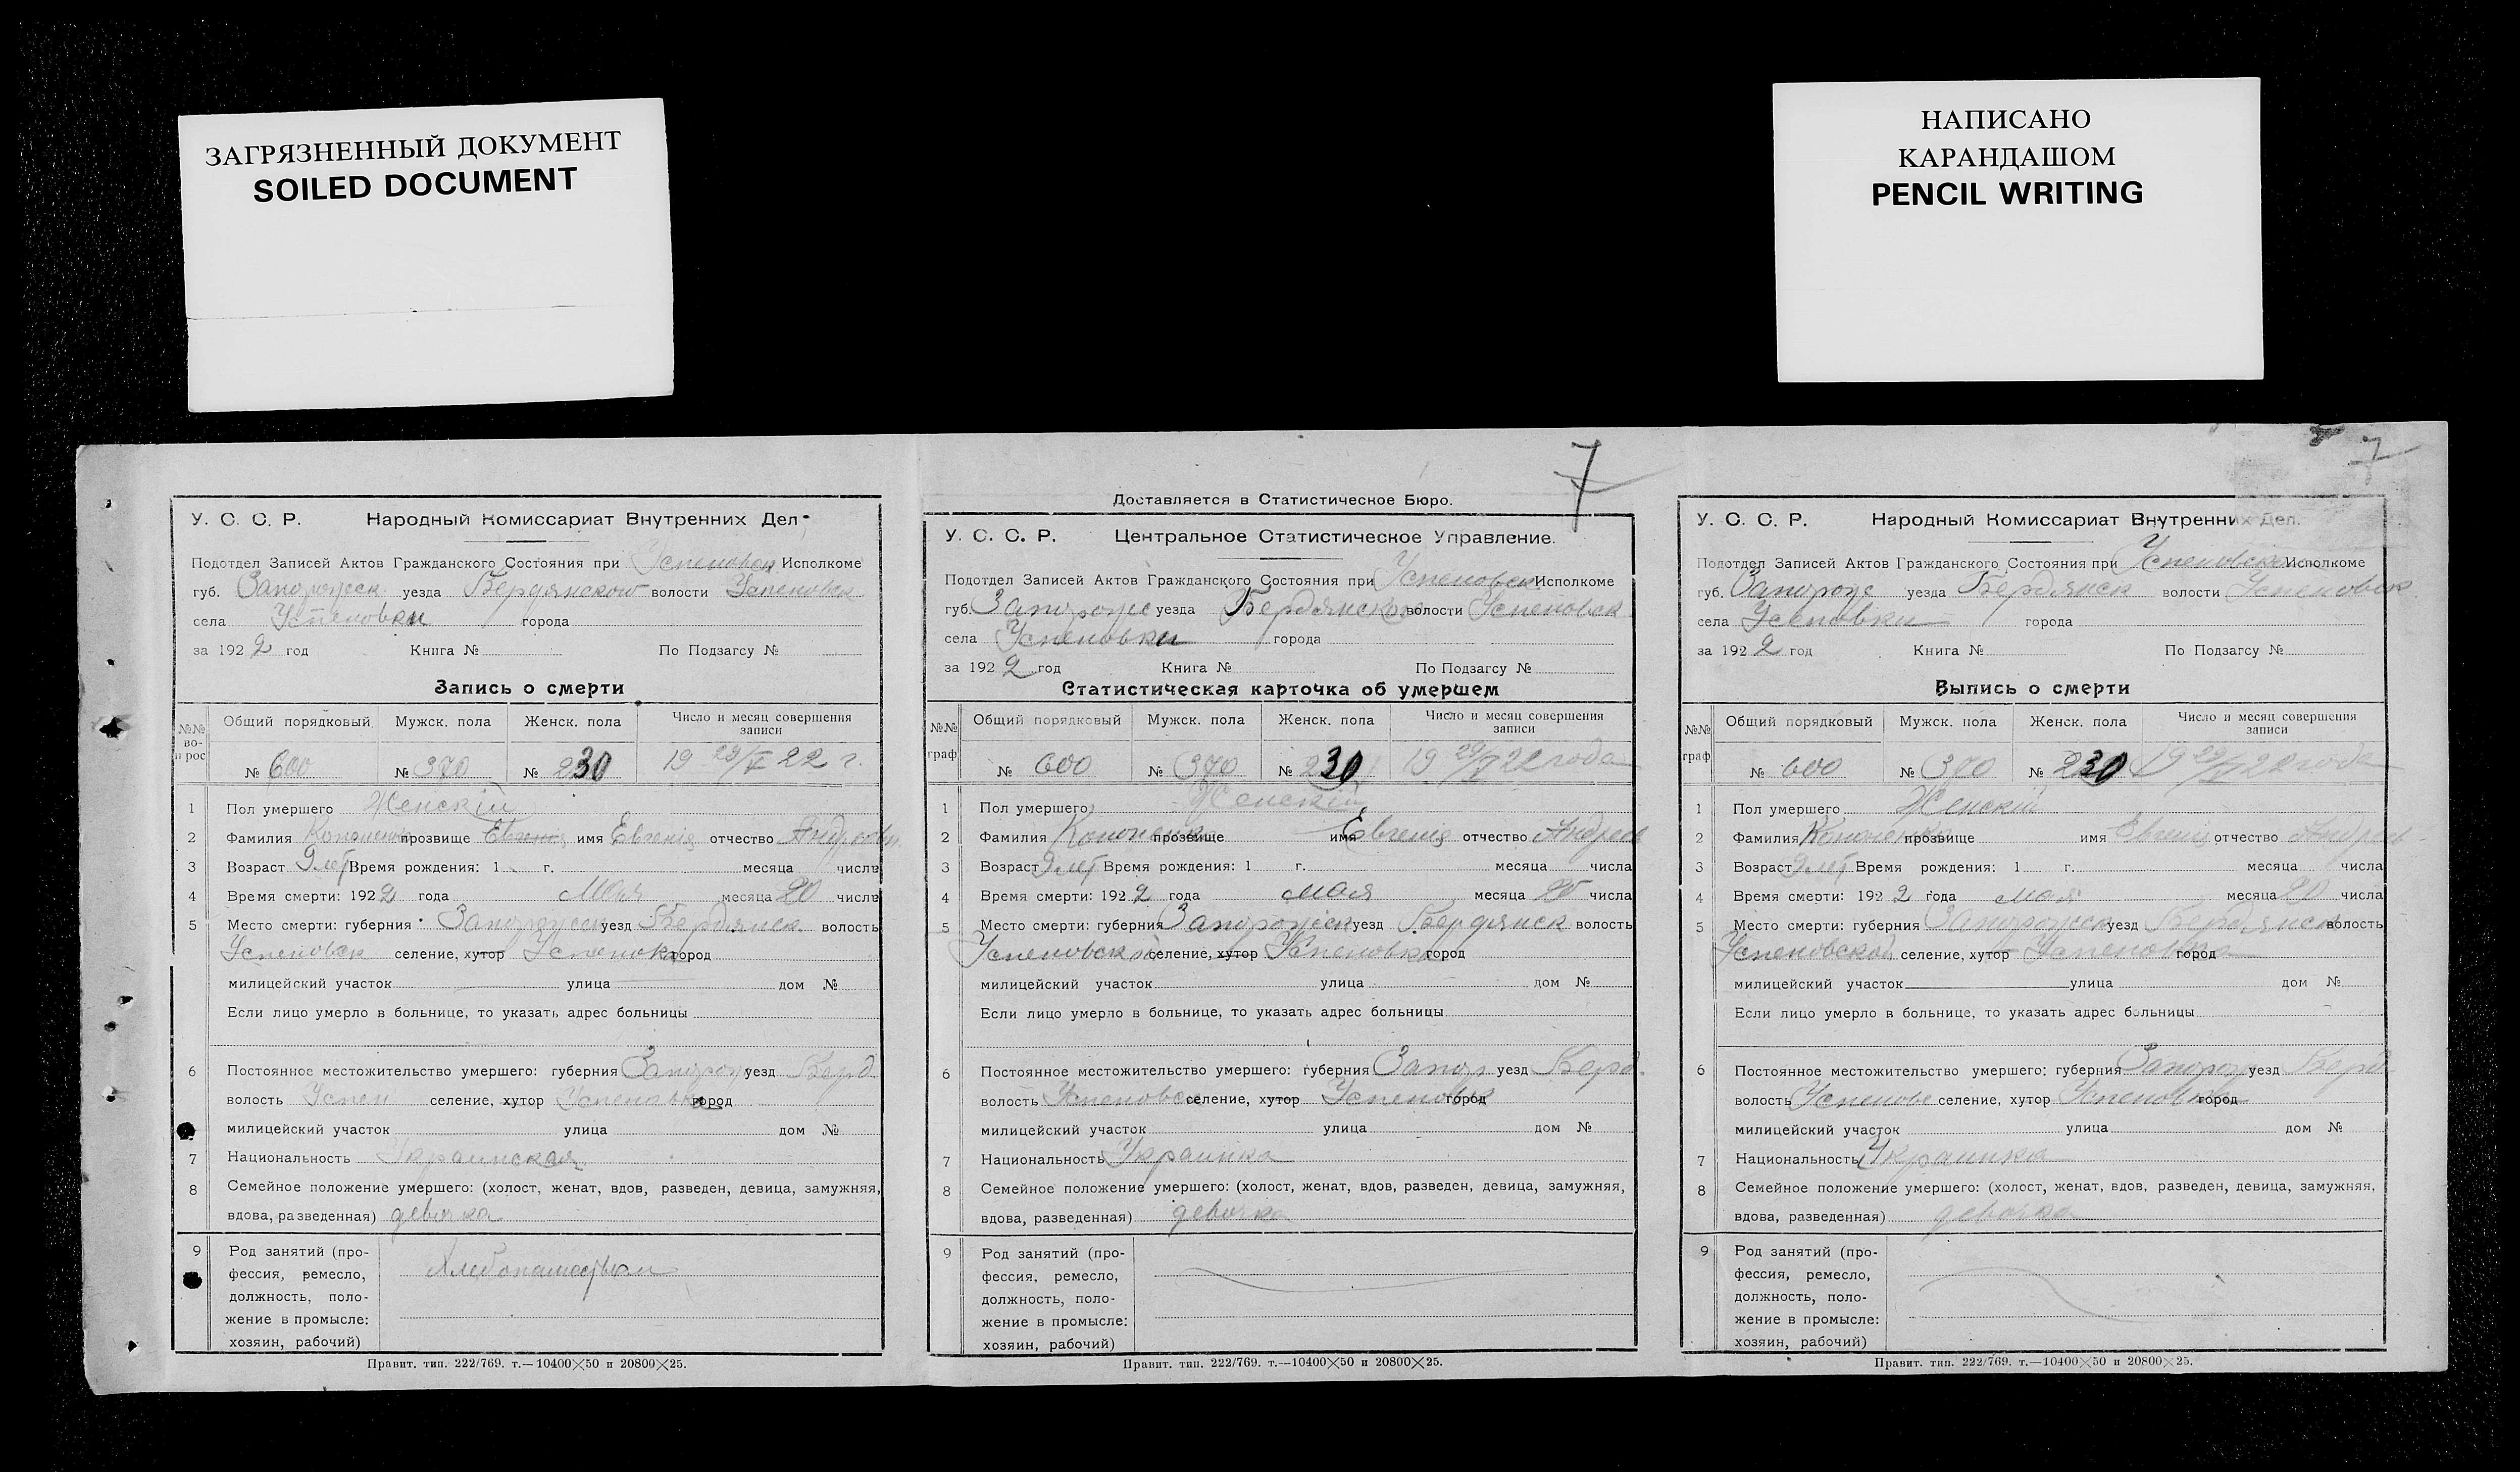 ЗАГРЯЗНЕННЫЙ ДОКУМЕНТ
SOILED DOCUMENT
НАПИСАНО
КАРАНДАШОМ
PENCIL WRITING
У. С. С. Р. Народный Комиссариат Внутренних Дел
Подотдел Записей Актов Гражданского Состояния при Исполкоме
губ. уезда Бердянском волости Успеновск
села Успеновки города
за 1922 год Книга № По Подзагсу №
Запись о смерти
№№ вопрос Общий порядковый Мужск. пола Женск. пола Число и месяц совершения записи
№ 600 № 370 № 230 22 г.
1 Пол умершего Женский
2 Фамилия Кононенко прозвище имя Евгения отчество
3 Возраст 9 лет Время рождения: 1 г. месяца числа
4 Время смерти: 1922 года Мая месяца 20 числа
5 Место смерти: губерния Запорожск уезд Бердянск волость
Успеновск селение, хутор Успеновка город
милицейский участок улица дом №
Если лицо умерло в больнице, то указать адрес больницы
6 Постоянное местожительство умершего: губерния Запорож уезд Берд.
волость Успен селение, хутор Успеновка город
милицейский участок улица дом №
7 Национальность Украинская
8 Семейное положение умершего: (холост, женат, вдов, разведен, девица, замужняя,
вдова, разведенная) девочка
9 Род занятий (про-
фессия, ремесло,
должность, поло-
жение в промысле:
хозяин, рабочий)
Правит. тип. 222/769. т.—10400×50 и 20800×25.
7
Доставляется в Статистическое Бюро.
У. С. С. Р. Центральное Статистическое Управление.
Подотдел Записей Актов Гражданского Состояния при Успеновск Исполкоме
губ. Запорож уезда Бердянск волости Успеновск
села Успеновки города
за 1922 год Книга № По Подзагсу №
Статистическая карточка об умершем
№№ граф Общий порядковый Мужск. пола Женск. пола Число и месяц совершения записи
№ 600 № 370 № 230 22 года
1 Пол умершего Женский
2 Фамилия Кононенко прозвище имя Евгения отчество Андреев
3 Возраст 9 лет Время рождения: 1 г. месяца числа
4 Время смерти: 1922 года мая месяца числа
5 Место смерти: губерния Запорожск уезд Бердянск волость
Успеновск селение, хутор Успеновка город
милицейский участок улица дом №
Если лицо умерло в больнице, то указать адрес больницы
6 Постоянное местожительство умершего: губерния Запор уезд Берд.
волость Успеновс селение, хутор Успеновк город
милицейский участок улица дом №
7 Национальность Украинка
8 Семейное положение умершего: (холост, женат, вдов, разведен, девица, замужняя,
вдова, разведенная) девочка
9 Род занятий (про-
фессия, ремесло,
должность, поло-
жение в промысле:
хозяин, рабочий)
Правит. тип. 222/769. т.—10400×50 и 20800×25.
7
У. С. С. Р. Народный Комиссариат Внутренних Дел.
Подотдел Записей Актов Гражданского Состояния при Успеновском Исполкоме
губ. Запорож уезда Бердянск волости Успеновск
села Успеновки города
за 1922 год Книга № По Подзагсу №
Выпись о смерти
№№ граф Общий порядковый Мужск. пола Женск. пола Число и месяц совершения записи
№ 600 № 370 № 230 22 года
1 Пол умершего Женский
2 Фамилия Кононенко прозвище имя Евгения отчество Андреев
3 Возраст 9 лет Время рождения: 1 г. месяца числа
4 Время смерти: 1922 года мая месяца 20 числа
5 Место смерти: губерния Запорожск уезд Бердянск волость
Успеновской селение, хутор Успеновка город
милицейский участок улица дом №
Если лицо умерло в больнице, то указать адрес больницы
6 Постоянное местожительство умершего: губерния Запорож уезд Берд.
волость Успенов селение, хутор Успеновка город
милицейский участок улица дом №
7 Национальность Украинка
8 Семейное положение умершего: (холост, женат, вдов, разведен, девица, замужняя,
вдова, разведенная) девочка
9 Род занятий (про-
фессия, ремесло,
должность, поло-
жение в промысле:
хозяин, рабочий)
Правит. тип. 222/769. т.—10400×50 и 20800×25.